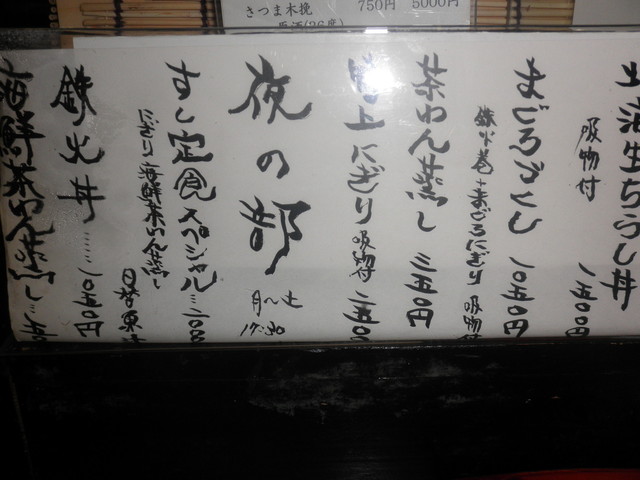 さつま木挽 750円 5000円
生ちらし丼
吸物付 一五〇〇円
まぐろづくし 一〇五〇円
鉄火巻+まぐろにぎり 吸物付
茶わん蒸し 三五〇円
特上にぎり 吸物付
夜の部
月~土
17:30
すし定食スペシャル
にぎり 海鮮茶わん蒸し
日替
鉄火丼……一〇五〇円
海鮮茶わん蒸し